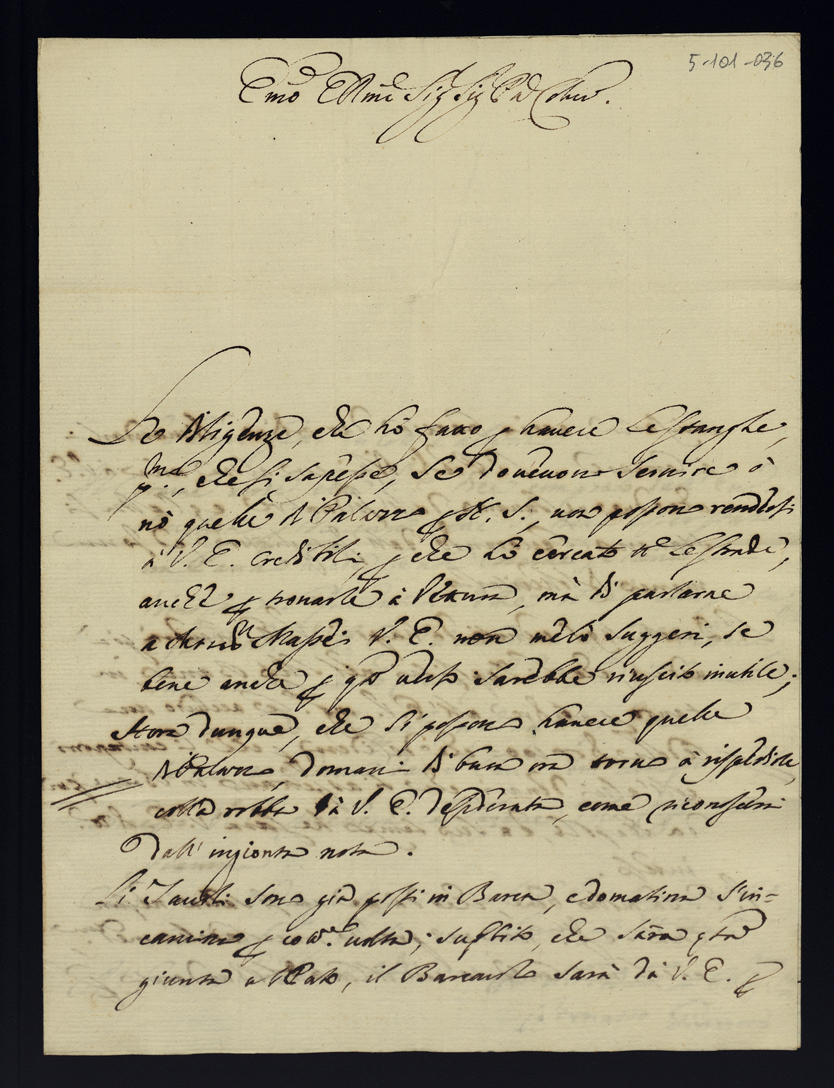 5-101-036
Emo E Rmo Sig Sig Pad Colmo.
Le diligenze, che hò fatto p havere le stanghe,
p.ma, che si sapesse, se dovevono servire ò
nò quelle di Palazzo p N. S., non possono rendersi
à V. E. credibili, p che hò cercato le strade,
anche p trovarle à Vettura, mà di parlarne
a Massei V. E. non me lo suggerì, se
bene anche p q.to verso sarebbe riuscito inutile;
Hora dunque, che si possono havere quelle
di Palazzo, domani di buon ora torno à rispedirle,
colla robba da V. E. desiderata, come riconoscerà
dall' ingionta nota.
Li Tavoli sono già posti in Barca, e domatina s'in=
camina p volta; subbito, che sarà
giunta a, il Barcarolo sarà da V. E. p